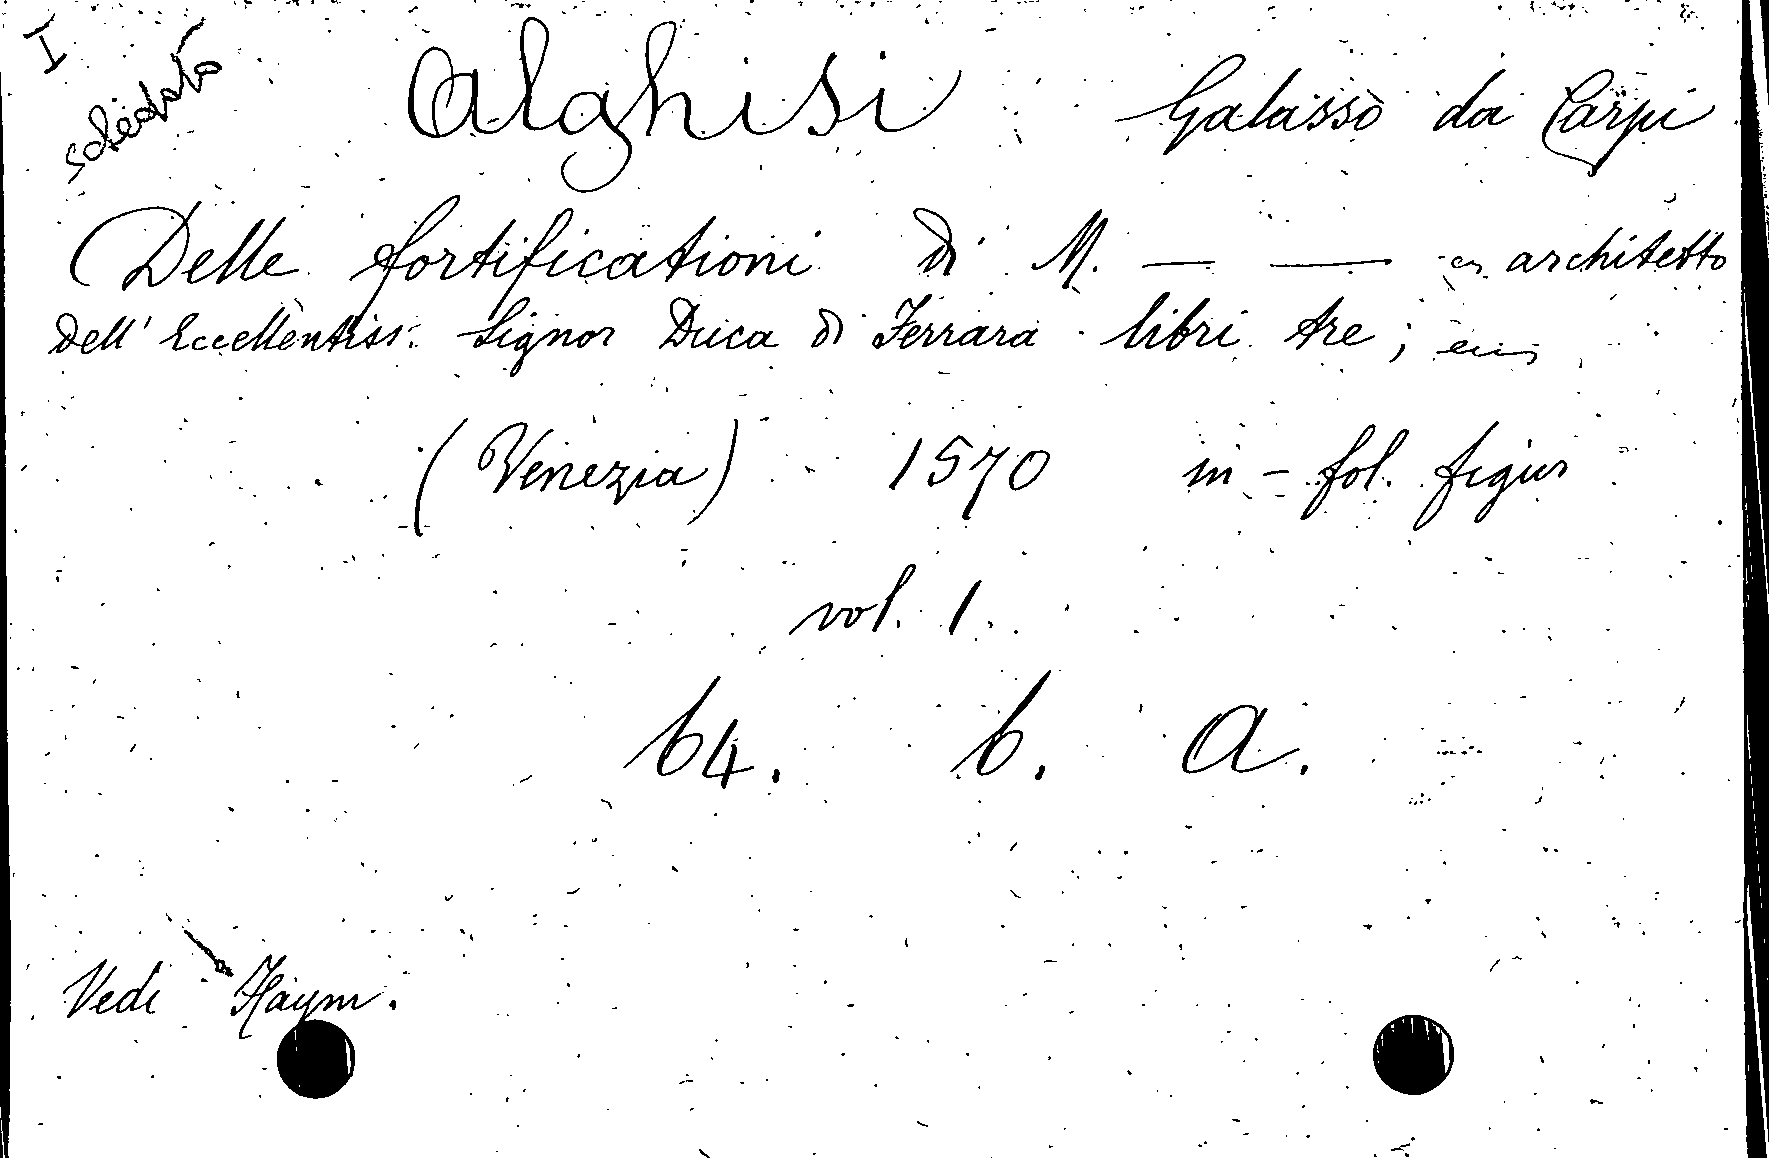 I
schedato
Alghisi Galasso da Carpi
Delle fortificationi di M. — — architetto
dell' Eccellentiss. Signor Duca di Ferrara libri tre;
(Venezia) 1570 in-fol. figur
vol. 1.
64. 6. A.
Vedi Haym.